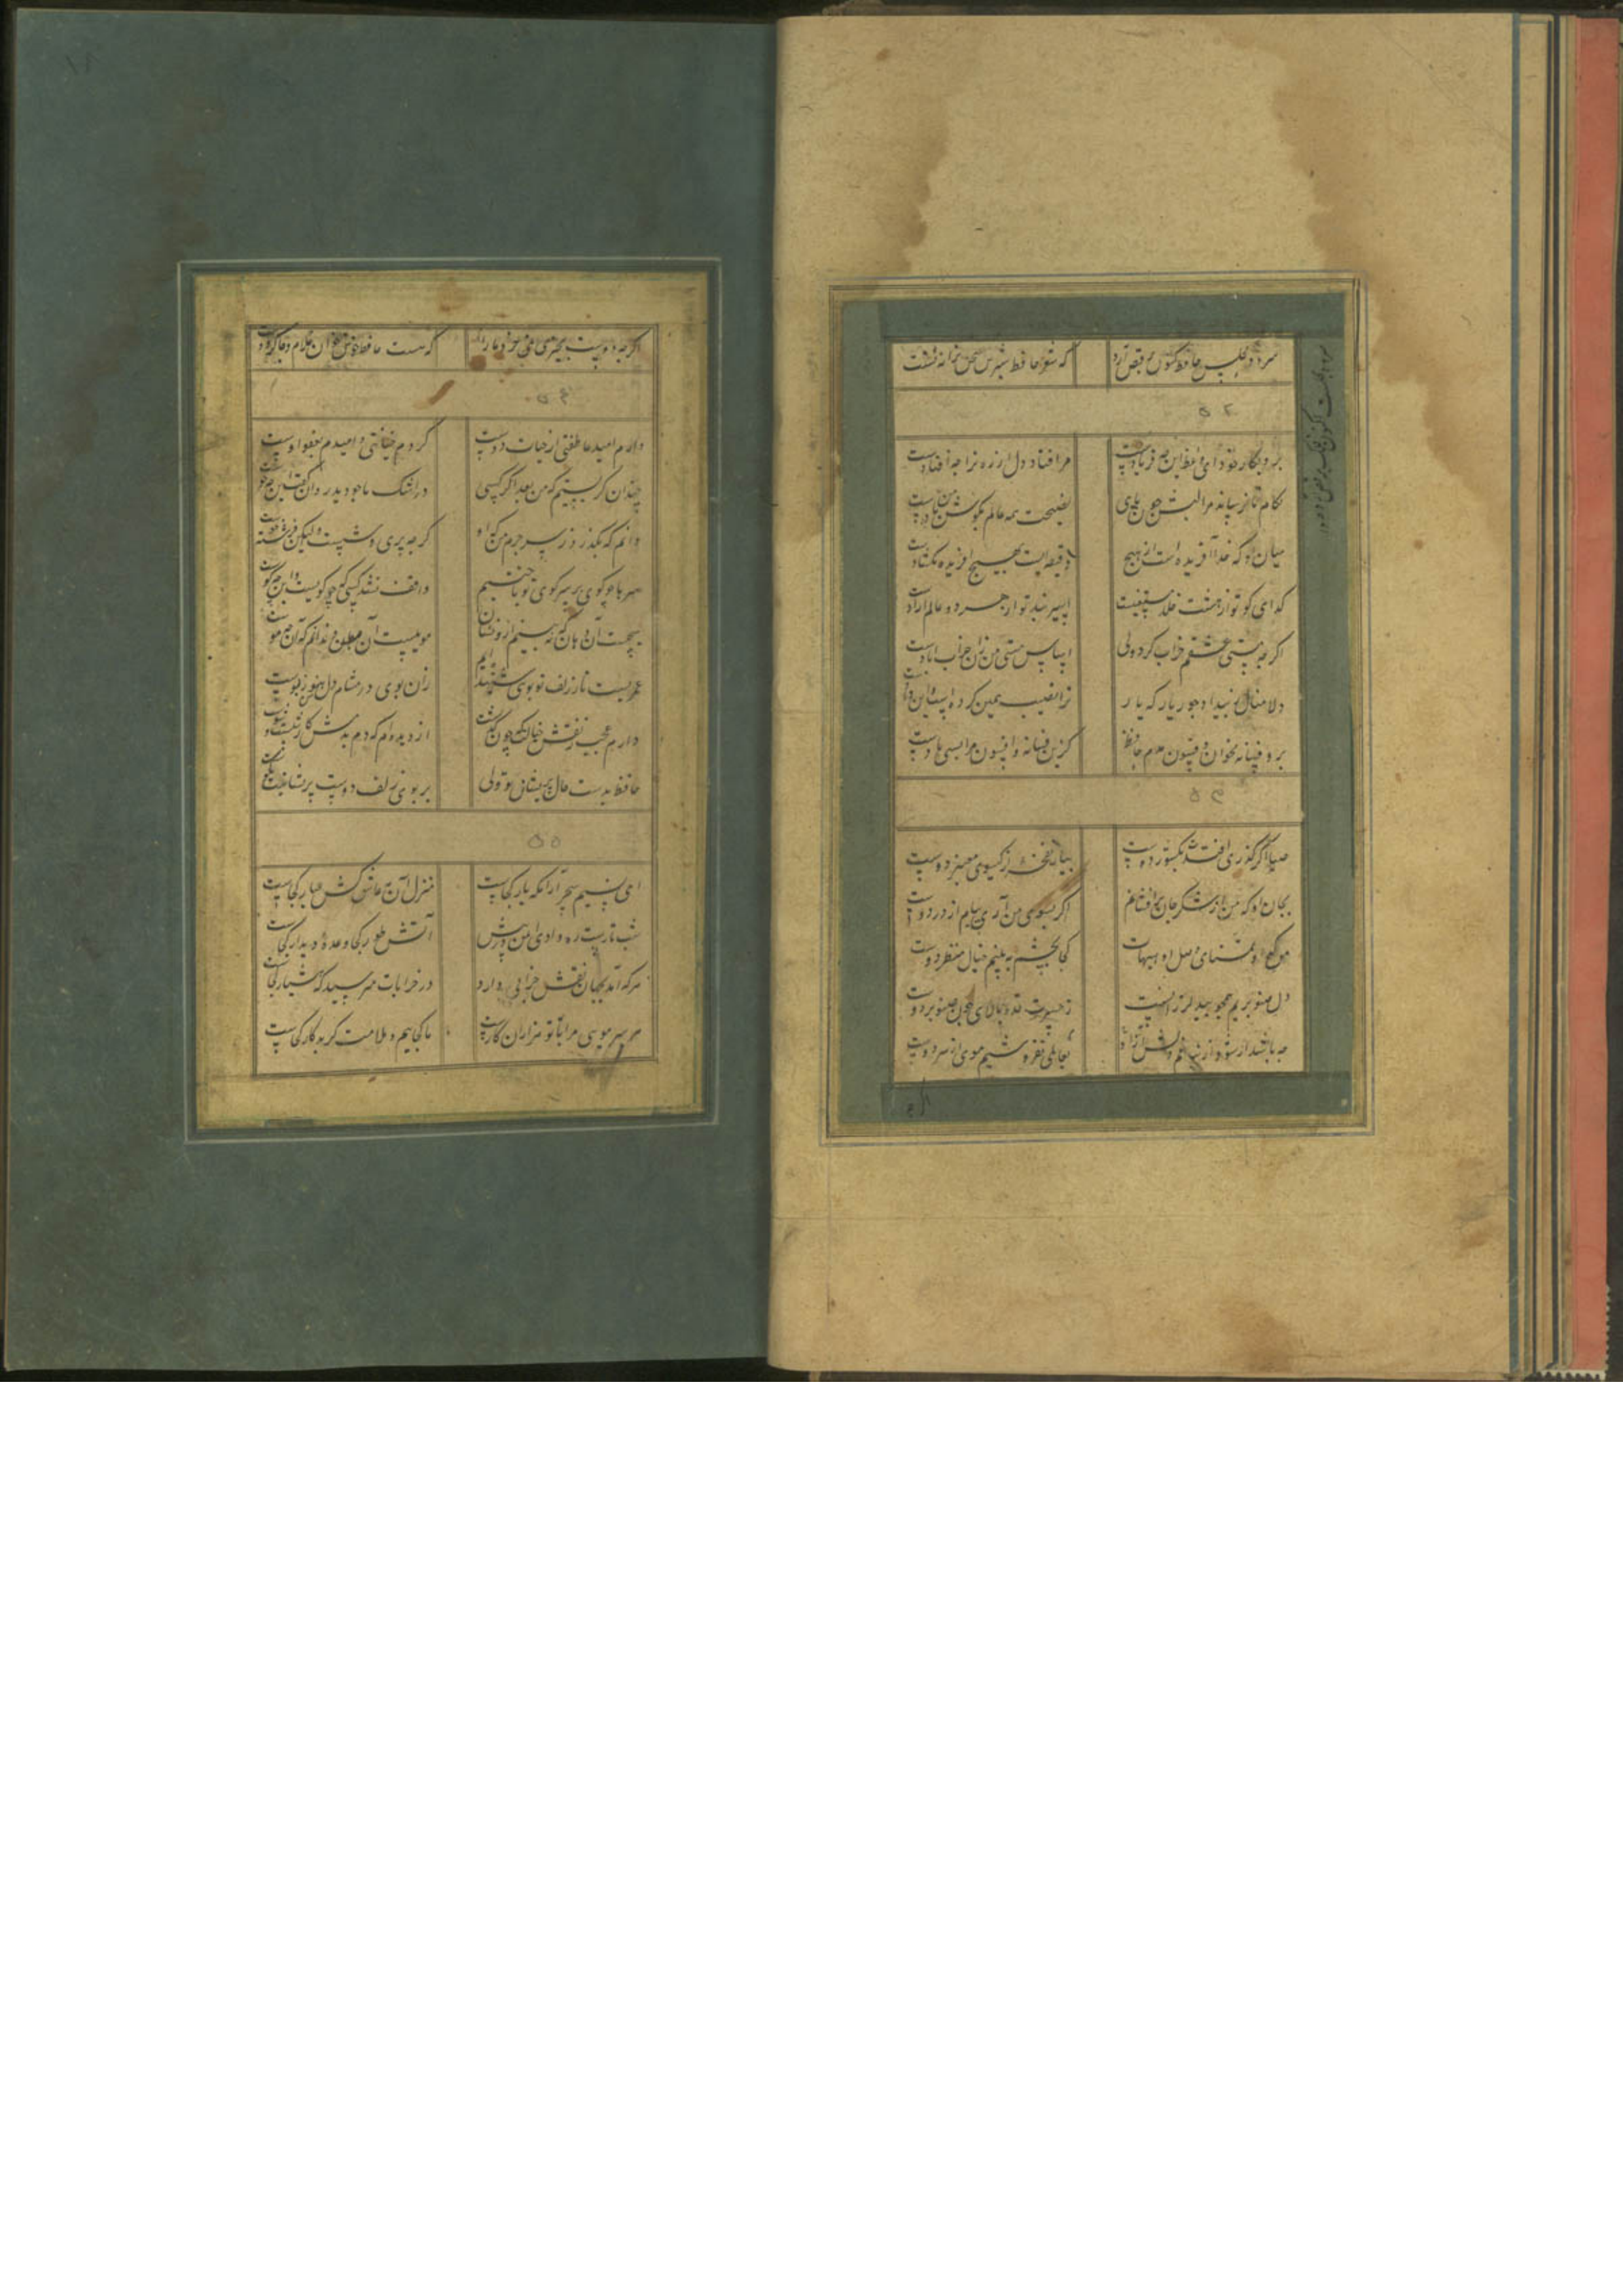 سرود مجلس حافظ کنون برقص آرد
که شعر حافظ شیرین سخن ترانه تست
۵۲
برو بکار خود ای واعظ این چه فریادست
مرا فتاد دل از ره ترا چه افتادست
بکام تا نرساند مرا لبش چون نای
نصیحت همه عالم بکوش من بادست
میان او که خدا آفریده است از هیچ
دقیقه ایست که هیچ آفریده نکشادست
کدای کوی تو از هشت خلد مستغنیست
اسیر بند تو از هر دو عالم آزادست
اکرچه مستی عشقم خراب کرد ولی
اساس هستی من زان خراب آبادست
دلا منال ز بیداد و جور یار که یار
ترا نصیب همین کرده است و این دادست
برو فسانه مخوان و فسون مدم حافظ
کزین فسانه و افسون مرا بسی یادست
۵۳
صبا اکر کذری افتدت بکشور دوست
بیار نفحه از کیسوی معنبر دوست
بجان او که من از شکر جان برافشانم
اکر بسوی من آری پیام از در دوست
من کدا و تمنای وصل او هیهات
کجا بچشم ببینم خیال منظر دوست
دل صنوبریم همچو بید لرزانست
ز حسرت قد و بالای چون صنوبر دوست
اکرچه دوست بچیزی نمی خرد ما را
که هست حافظ خوش خوان غلام و چاکر دوست
۵۴
دارم امید عاطفتی از جناب دوست
کردم خیانتی و امیدم بعفو اوست
دانم که بکذرد ز سر جرم من که او
کرچه پری وشست ولیکن فرشته خوست
چندان کریستیم که من بعد اکر کسی
در اشک ما چو دید روان کفت این چه جوست
سرها چو کوی بر سر کوی تو باختیم
واقف نشد کسی که چه کویست و این چه کوست
هیچست آن دهان که نبینم ازو نشان
مویست آن میان و ندانم که آن چه موست
عمریست تا ز زلف تو بوی شنیده ایم
زان بوی در مشام دل من هنوز بوست
دارم عجب ز نقش خیالش که چون نرفت
از دیده ام که دم بدمش کار شست و شوست
حافظ بدست حال پریشان تو ولی
بر بوی زلف دوست پریشانیت نکوست
۵۵
ای نسیم سحر آرامکه یار کجاست
منزل آن مه عاشق کش عیار کجاست
شب تارست و ره وادی ایمن در پیش
آتش طور کجا وعده دیدار کجاست
هرکه آمد بجهان نقش خرابی دارد
در خرابات مپرسید که هشیار کجاست
هر سر موی مرا با تو هزاران کارست
ما کجاییم و ملامت کر بیکار کجاست